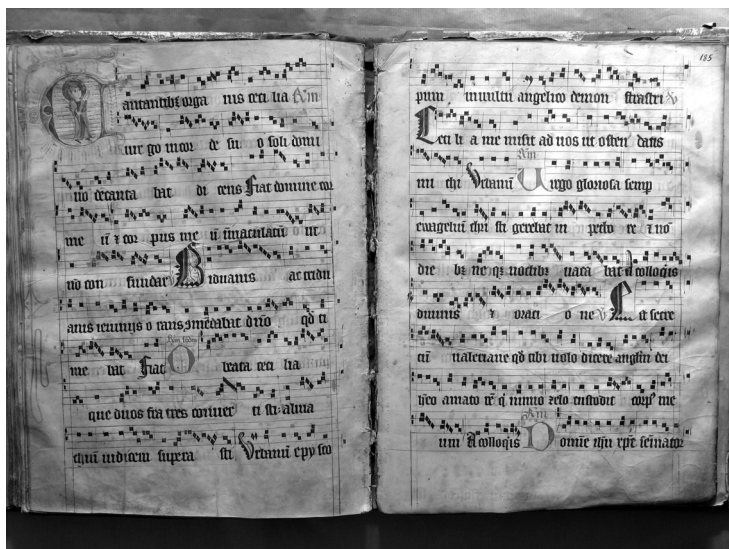 antantibꝫ orga nis ceci lia Am
uir go in cor de su o soli domi
no decanta bat di cens Fiat domine cor
me ū ⁊ cor pus me ū īmaculatū ut
nō con fundar Biduanis ac tridu
anis ieiunijs o rans dn̄o
me bat Fiat O beata ceci lia
que duos fra tres conuer ti sti
chiū iudicem supera sti Vrbanū epy sco
185
pum in uultu angelico demon strasti
Ceci li a me misit ad nos ut osten datis
mi chi Vrbanū Am Uirgo gloriosa semp
ewangeliū chri sti gerebat in pecto re ⁊ nō
die bꝫ ne qꝫ noctibꝫ uaca bat A colloquijs
diuinis ⁊ oraci o ne Est secre
tū ualeriane qd̄ tibi uolo dicere angelū dei
h̄eo amato rē q̄ nimio zelo custodit corpꝰ me
um A colloquijs Am Domine ih̄u xp̄e semīator